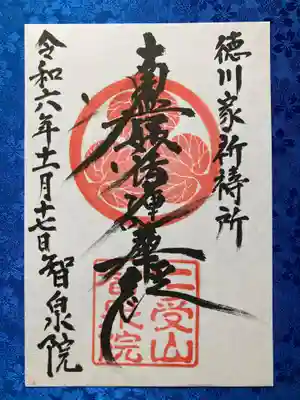 徳川家祈祷所
南無妙法蓮華経
受山
智泉院
令和六年十一月十七日 智泉院